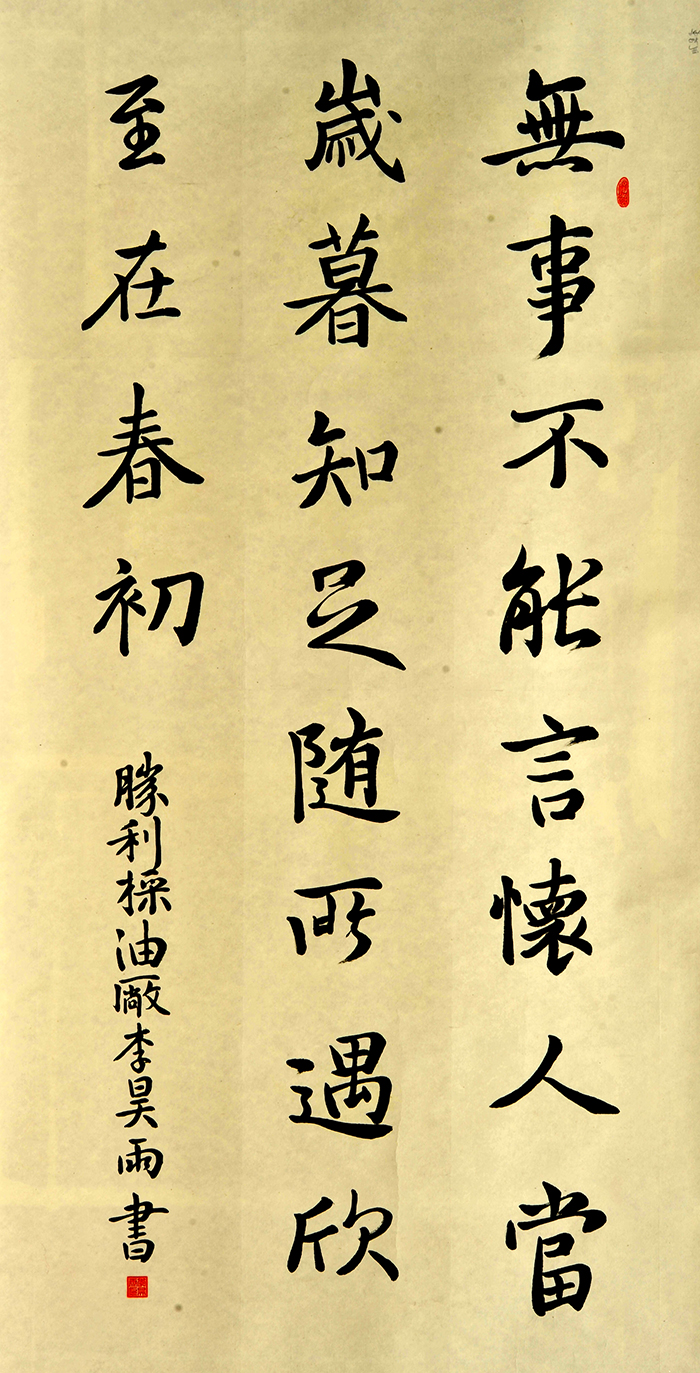 無事不能言懷人當
歲暮知足随所遇欣
至在春初
勝利採油廠李昊雨書